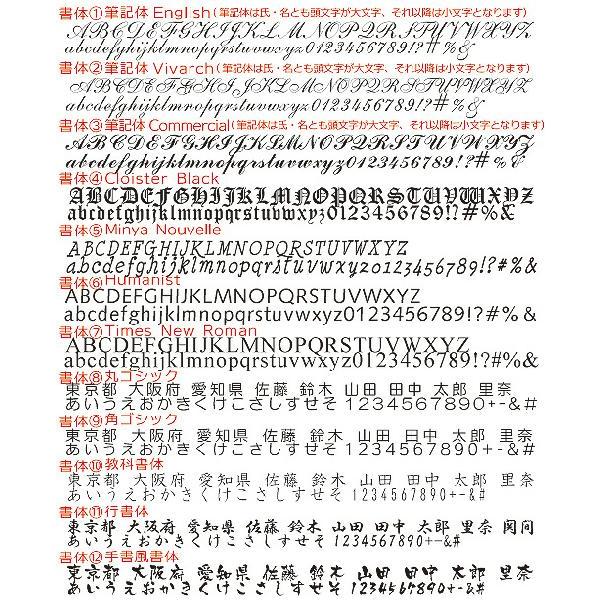 書体①筆記体English(筆記体は氏・名とも頭文字が大文字、それ以降は小文字となります)
ABCDEFGHIJKLMNOPQRSTUVWXYZ
abcdefghijklmnopqrstuvwxyz0123456789!?#%&
書体②筆記体Vivarch(筆記体は氏・名とも頭文字が大文字、それ以降は小文字となります)
ABCDEFGHIJKLMNOPQRSTUVWXYZ
abcdefghijklmnopqrstuvwxyz0123456789!?#%&
書体③筆記体Commercial(筆記体は氏・名とも頭文字が大文字、それ以降は小文字となります)
ABCDEFGHIJKLMNOPQRSTUVWXYZ
abcdefghijklmnopqrstuvwxyz0123456789!?#%&
書体④Cloister Black
ABCDEFGHIJKLMNOPQRSTUVWXYZ
abcdefghijklmnopqrstuvwxyz0123456789!?#%&
書体⑤Minya Nouvelle
ABCDEFGHIJKLMNOPQRSTUVWXYZ
abcdefghijklmnopqrstuvwxyz0123456789!?#%&
書体⑥Humanist
ABCDEFGHIJKLMNOPQRSTUVWXYZ
abcdefghijklmnopqrstuvwxyz0123456789!?#%&
書体⑦Times New Roman
ABCDEFGHIJKLMNOPQRSTUVWXYZ
abcdefghijklmnopqrstuvwxyz0123456789!?#%&
書体⑧丸ゴシック
東京都 大阪府 愛知県 佐藤 鈴木 山田 田中 太郎 里奈
あいうえおかきくけこさしすせそ 1234567890+-&#
書体⑨角ゴシック
東京都 大阪府 愛知県 佐藤 鈴木 山田 田中 太郎 里奈
あいうえおかきくけこさしすせそ 1234567890+-&#
書体⑩教科書体
東京都 大阪府 愛知県 佐藤 鈴木 山田 田中 太郎 里奈
あいうえおかきくけこさしすせそ 1234567890+-&#
書体⑪行書体
東京都 大阪府 愛知県 佐藤 鈴木 山田 田中 太郎 里奈 関間
あいうえおかきくけこさしすせそ 1234567890+-&#
書体⑫手書風書体
東京都 大阪府 愛知県 佐藤 鈴木 山田 田中 太郎 里奈
あいうえおかきくけこさしすせそ 1234567890+-&#